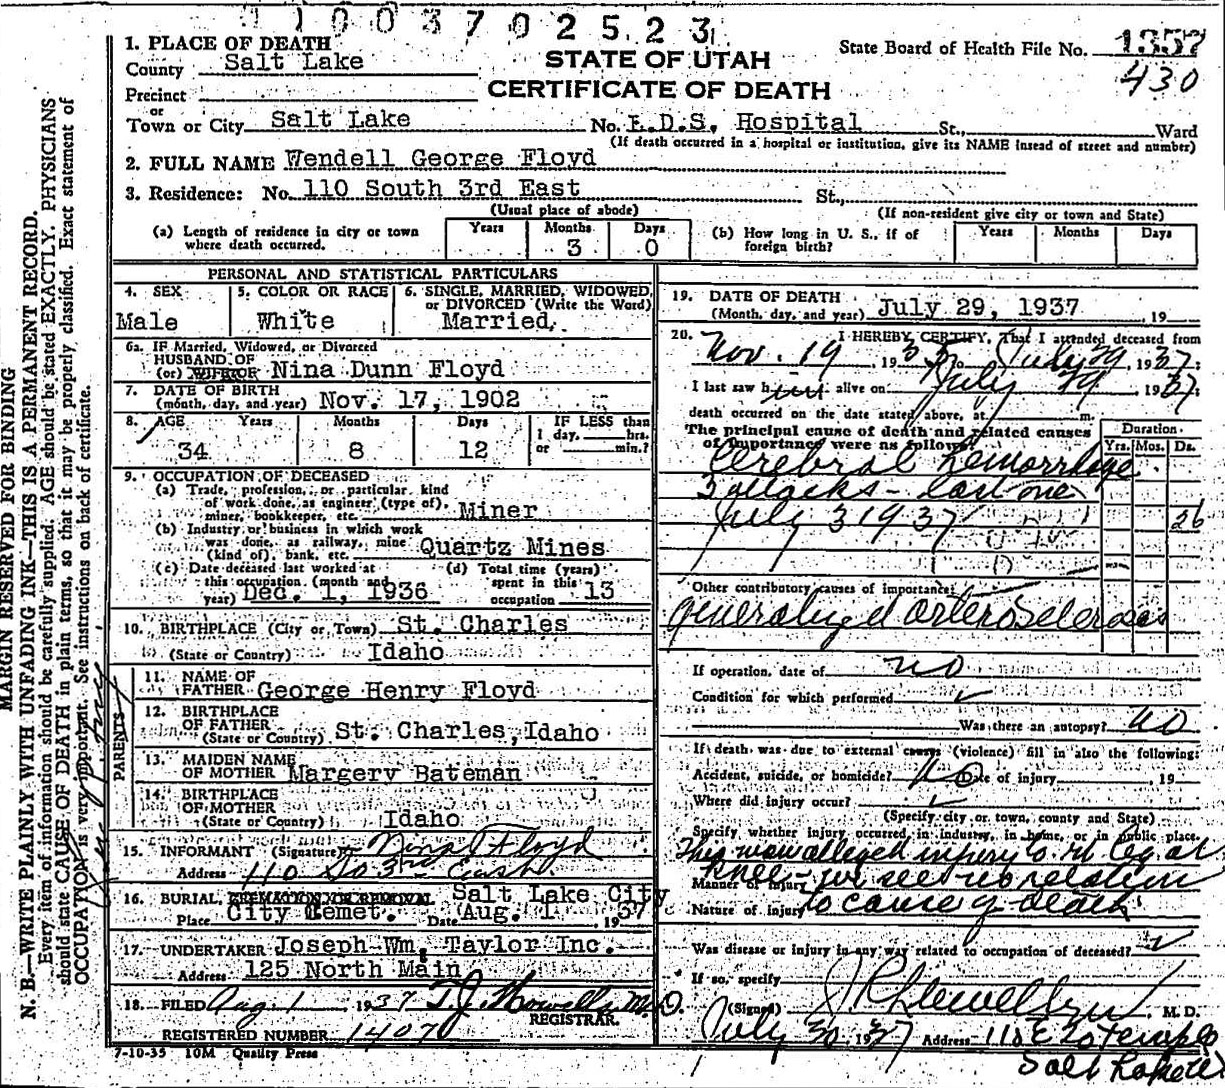 11003702523
1. PLACE OF DEATH
County Salt Lake
Precinct
or
Town or City Salt Lake No. L.D.S. Hospital St., Ward
(If death occurred in a hospital or institution, give its NAME insead of street and number)
STATE OF UTAH
CERTIFICATE OF DEATH
State Board of Health File No. 1357
430
2. FULL NAME Wendell George Floyd
3. Residence: No. 110 South 3rd East St.,
(Usual place of abode)
(If non-resident give city or town and State)
(a) Length of residence in city or town where death occurred. Years Months 3 Days 0
(b) How long in U. S., if of foreign birth? Years Months Days
PERSONAL AND STATISTICAL PARTICULARS
4. SEX
Male
5. COLOR OR RACE
White
6. SINGLE, MARRIED, WIDOWED, or DIVORCED (Write the Word)
Married
6a. IF Married, Widowed, or Divorced
HUSBAND OF
(or) WIFE OF Nina Dunn Floyd
7. DATE OF BIRTH
(month, day, and year) Nov. 17, 1902
8. AGE Years Months Days IF LESS than
34 8 12
1 day, hrs.
or min.?
9. OCCUPATION OF DECEASED
(a) Trade, profession, or particular kind
of work done, as engineer (type of),
miner, bookkeeper, etc. Miner
(b) Industry or business in which work
was done, as railway, mine
(kind of), bank, etc. Quartz Mines
(c) Date deceased last worked at
this occupation (month and
year) Dec. 1, 1936
(d) Total time (years)
spent in this
occupation 13
10. BIRTHPLACE (City or Town) St. Charles
(State or Country) Idaho
PARENTS
11. NAME OF
FATHER George Henry Floyd
12. BIRTHPLACE
OF FATHER
(State or Country) St. Charles, Idaho
13. MAIDEN NAME
OF MOTHER Margery Bateman
14. BIRTHPLACE
OF MOTHER
(State or Country) Idaho
15. INFORMANT (Signature) Nina Floyd
Address 110 So 3rd East
16. BURIAL, CREMATION OR REMOVAL Salt Lake City
Place City Cemet. Date Aug. 1 1937
17. UNDERTAKER Joseph Wm. Taylor Inc.
Address 125 North Main
18. FILED Aug. 1 1937 T. J. Howells M.D.
REGISTRAR.
REGISTERED NUMBER 1407
7-10-35 10M Quality Press
19. DATE OF DEATH
(Month, day, and year) July 29, 1937, 19
20. I HEREBY CERTIFY, That I attended deceased from
Nov. 19, 1935, to July 29, 1937:
I last saw him alive on July 29 1937:
death occurred on the date stated above, at m.
The principal cause of death and related causes
of importance were as follows:
Duration
Yrs. Mos. Ds.
Cerebral hemorrhage
3 attacks - last one
July 3 1937 26
Other contributory causes of importance:
generalized arterosclerosis
If operation, date of no
Condition for which performed
Was there an autopsy? no
If death was due to external causes (violence) fill in also the following:
Accident, suicide, or homicide? no Date of injury 19
Where did injury occur?
(Specify city or town, county and State)
Specify whether injury occurred in industry, in home, or in public place.
This was alleged injury to rt leg at
Manner of injury knee - we see no relation
Nature of injury to cause of death
Was disease or injury in any way related to occupation of deceased?
If so, specify
(Signed) J R Llewellyn, M. D.
July 30 1937 Address 110 E So Temple
Salt Lake
MARGIN RESERVED FOR BINDING
N. B.—WRITE PLAINLY WITH UNFADING INK—THIS IS A PERMANENT RECORD.
Every item of information should be carefully supplied. AGE should be stated EXACTLY. PHYSICIANS
should state CAUSE OF DEATH in plain terms, so that it may be properly classified. Exact statement of
OCCUPATION is very important. See instructions on back of certificate.